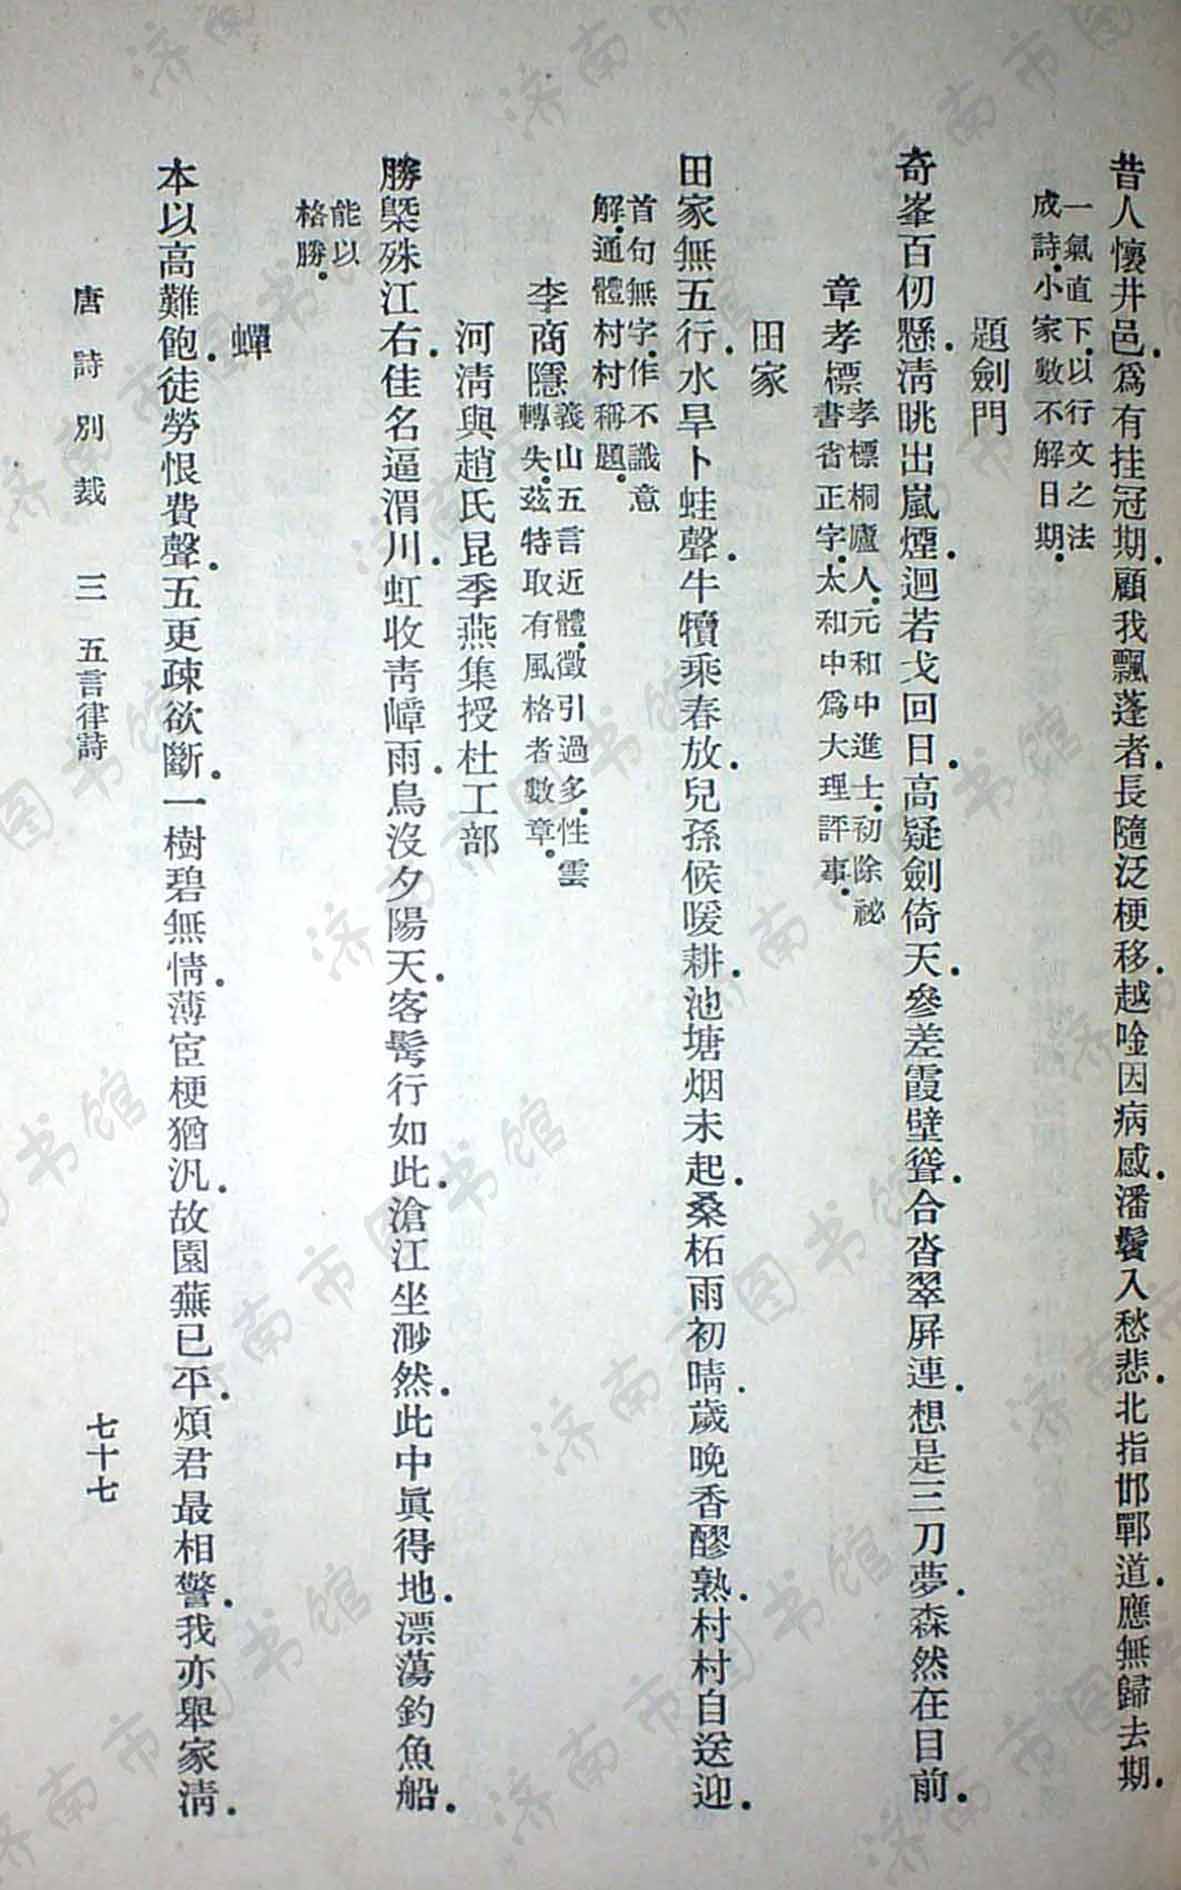 昔人懷井邑.爲有挂冠期.顧我飄蓬者.長隨泛梗移.越唫因病感.潘鬢入愁悲.北指邯鄲道.應無歸去期.
一氣直下.以行文之法
成詩.小家數不解日期.
題劍門
奇峯百仞懸.淸眺出嵐煙.迴若戈回日.高疑劍倚天.參差霞壁聳.合沓翠屛連.想是三刀夢.森然在目前.
章孝標
孝標桐廬人.元和中進士.初除祕
書省正字.太和中爲大理評事.
田家
田家無五行.水旱卜蛙聲.牛犢乘春放.兒孫候暖耕.池塘烟未起.桑柘雨初晴.歲晚香醪熟.村村自送迎.
首句無字.作不識意
解.通體村村稱題.
李商隱
義山五言近體.徵引過多.性靈
轉失.茲特取有風格者數章.
河淸與趙氏昆季燕集授杜工部
勝槩殊江右.佳名逼渭川.虹收靑嶂雨.鳥沒夕陽天.客鬢行如此.滄江坐渺然.此中眞得地.漂蕩釣魚船.
能以
格勝.
蟬
本以高難飽.徒勞恨費聲.五更疎欲斷.一樹碧無情.薄宦梗猶汎.故園蕪已平.煩君最相警.我亦舉家淸.
唐詩別裁 三 五言律詩
七十七
济南市图书馆